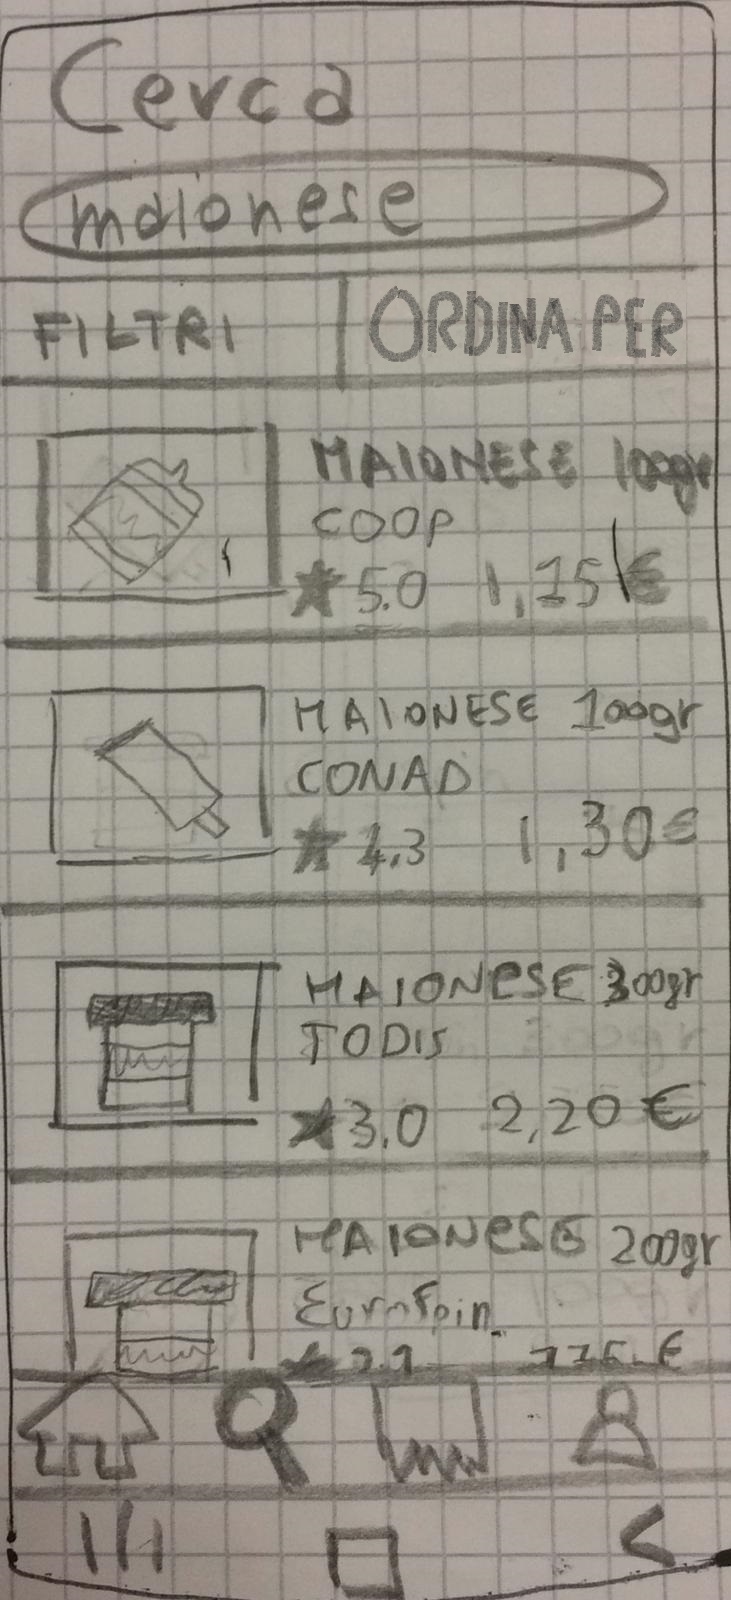 Cerca
maionese
FILTRI
ORDINA PER
MAIONESE 100gr
COOP
5.0 1,15€
MAIONESE 100gr
CONAD
4.3 1,30€
MAIONESE 300gr
TODIS
3.0 2,20€
MAIONESE 200gr
Eurospin